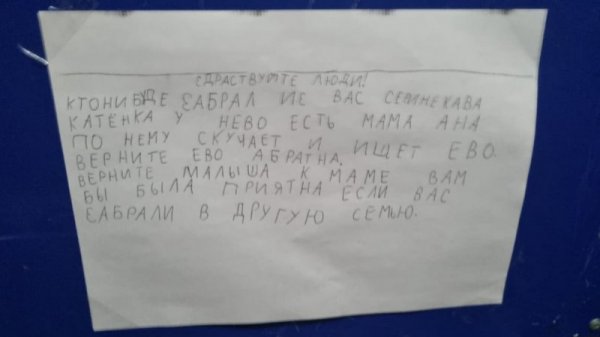 СДРАСТВУЙТЕ ЛЮДИ!
КТОНИБУДЕ ЗАБРАЛ ИЕ ВАС СЕВИНЕКАВА
КАТЕНКА У НЕВО ЕСТЬ МАМА АНА
ПО НЕМУ СКУЧАЕТ И ИЩЕТ ЕВО.
ВЕРНИТЕ ЕВО АБРАТНА.
ВЕРНИТЕ МАЛЫША К МАМЕ ВАМ
БЫ БЫЛА ПРИЯТНА ЕСЛИ ВАС
ЗАБРАЛИ В ДРУГУЮ СЕМЬЮ.